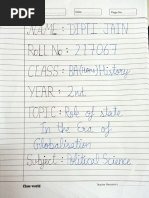 Date
Page No.
NAME : DEPTI JAIN
Roll No : 217067
CLASS : BA(Hons) History
YEAR : 2nd
TOPIC : Role of state
In the Era of
Globalisation
Subject : Political Science